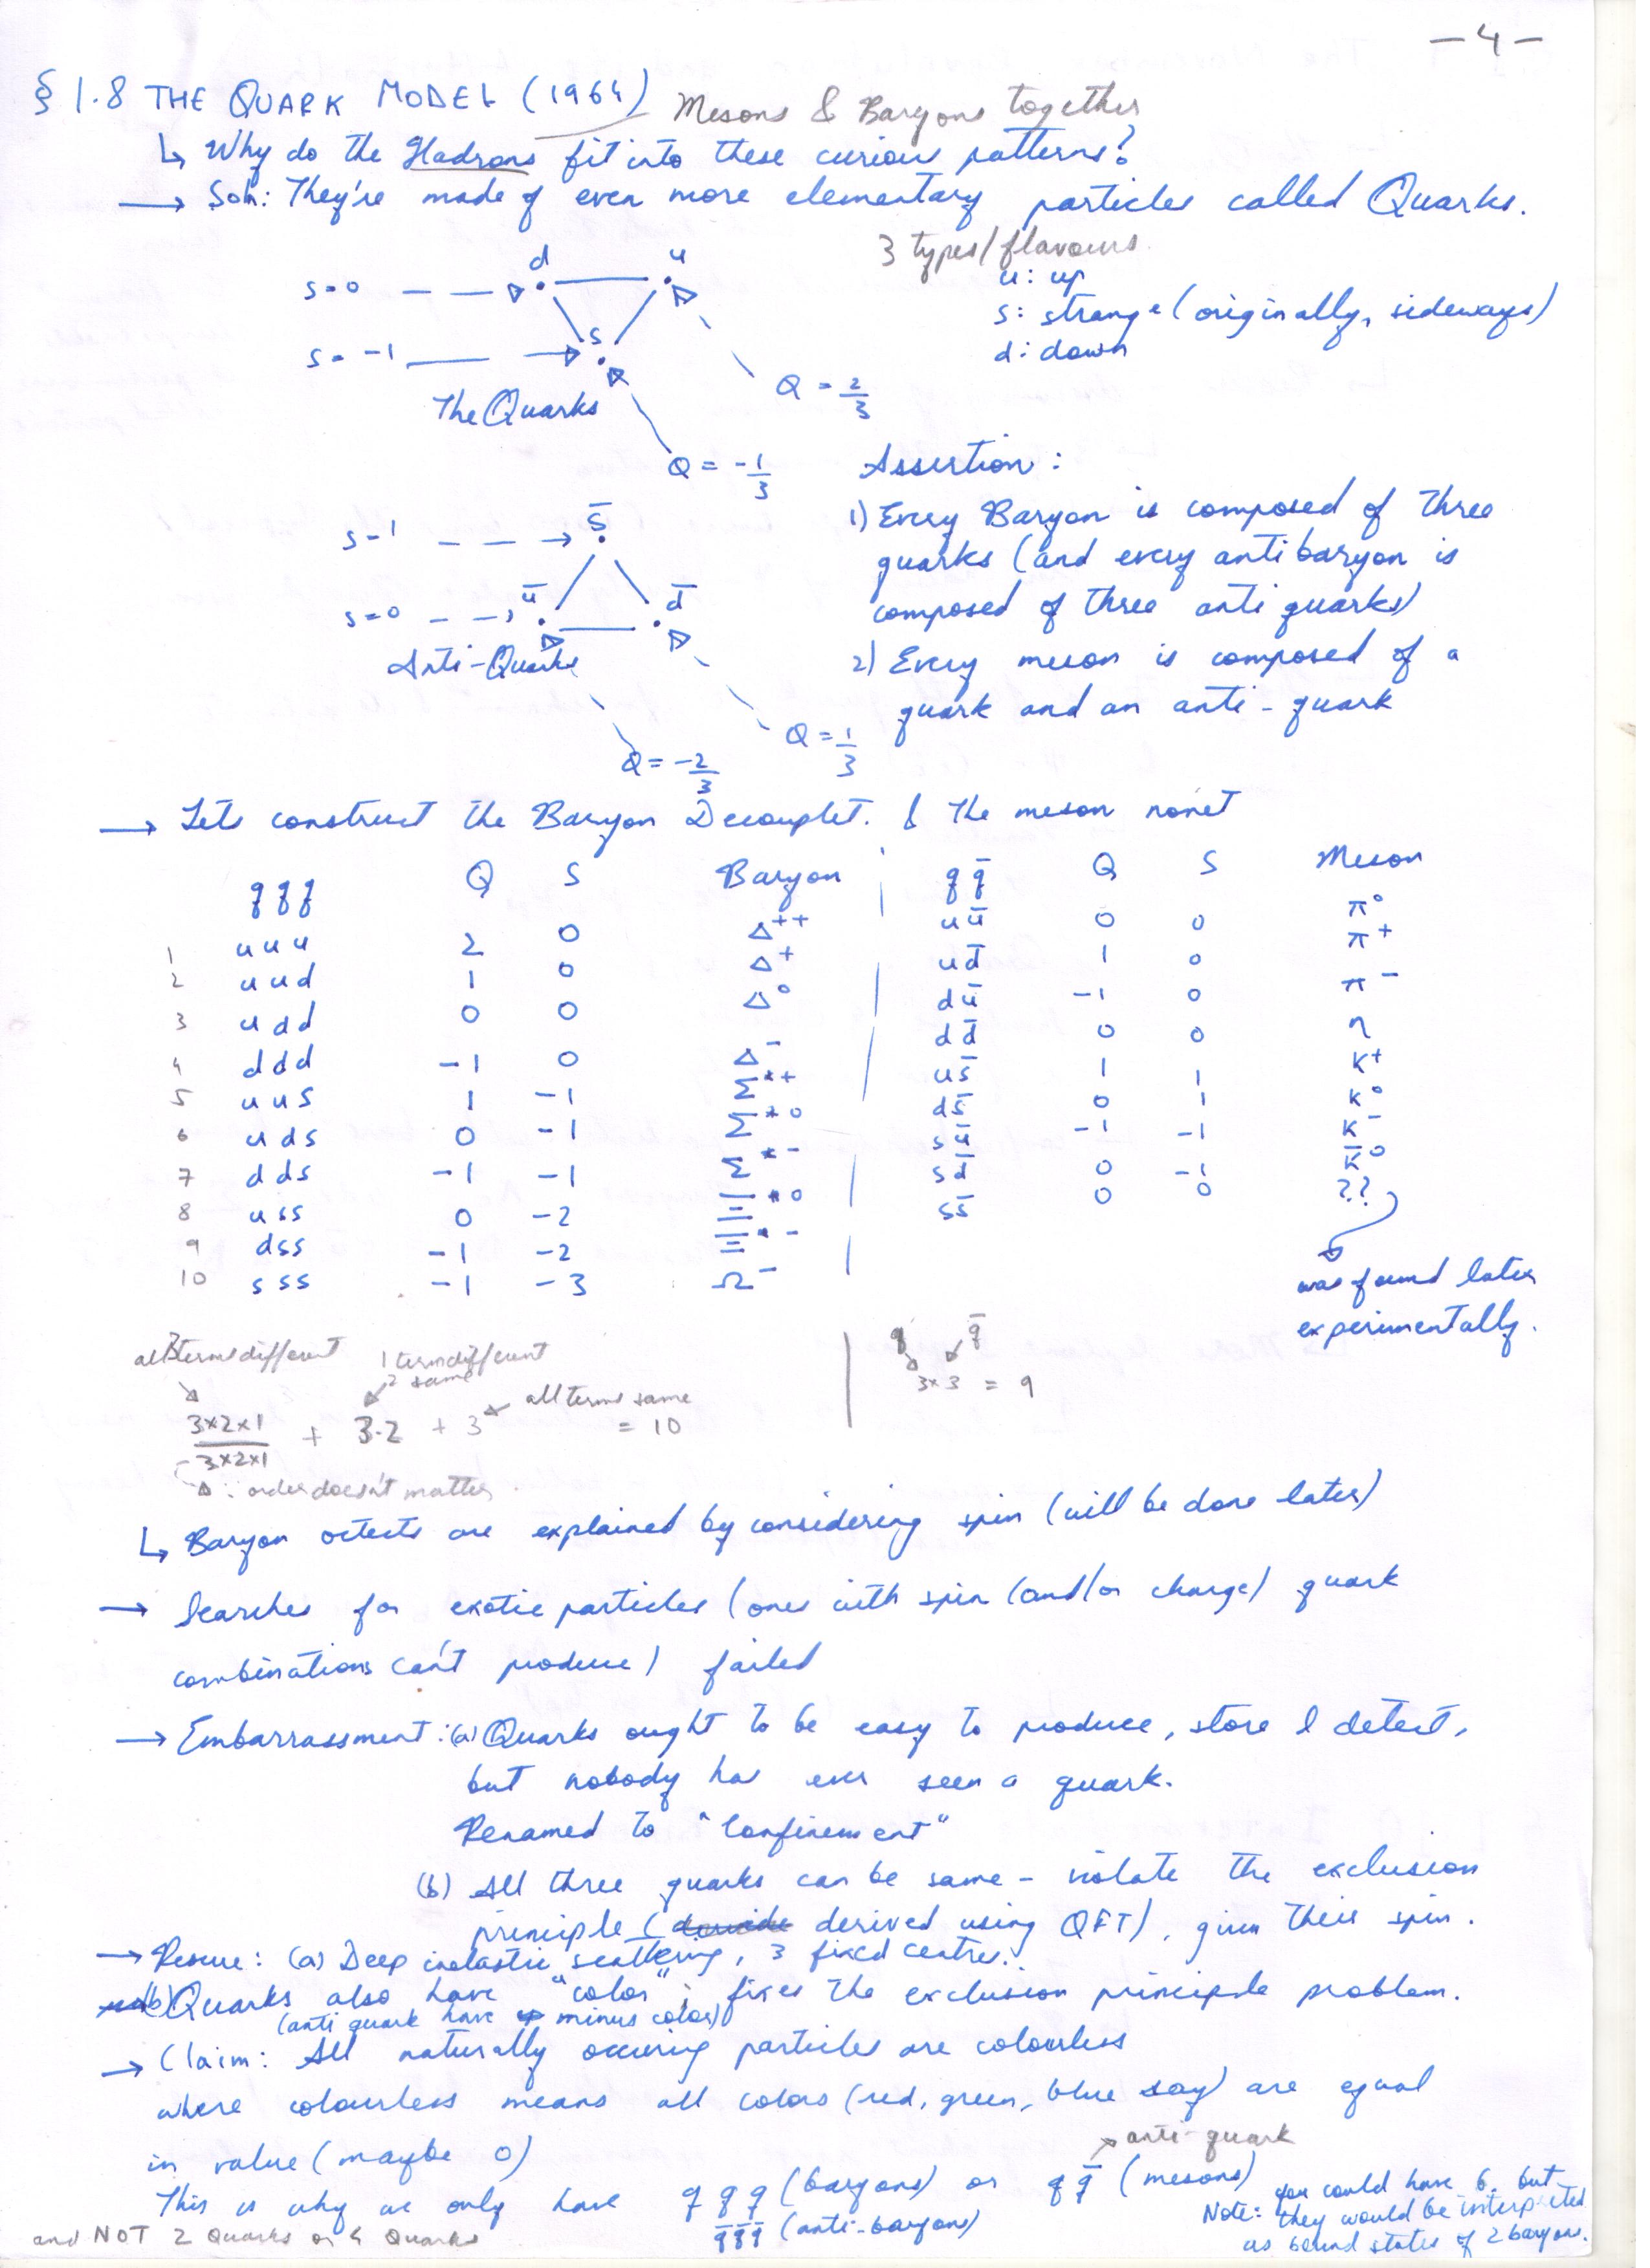 -4-
§ 1.8 THE QUARK MODEL (1964) Mesons & Baryons together
↳ Why do the Hadrons fit into these curious patterns?
→ Soln: They're made of even more elementary particles called Quarks.
3 types/flavours
u: up
s: strange (originally, sideways)
d: down
d u
s=0
s
s=-1
The Quarks
Q = 2/3
Q = -1/3
s̄
s=1
ū d̄
s=0
Anti-Quarks
Q = 1/3
Q = -2/3
Assertion:
1) Every Baryon is composed of three
quarks (and every antibaryon is
composed of three antiquarks)
2) Every meson is composed of a
quark and an anti-quark
→ Lets construct the Baryon Decouplet. & the meson nonet
qqq Q S Baryon
1 uuu 2 0 Δ++
2 uud 1 0 Δ+
3 udd 0 0 Δ0
4 ddd -1 0 Δ-
5 uus 1 -1 Σ*+
6 uds 0 -1 Σ*0
7 dds -1 -1 Σ*-
8 uss 0 -2 Ξ*0
9 dss -1 -2 Ξ*-
10 sss -1 -3 Ω-
qq̄ Q S Meson
uū 0 0 π0
ud̄ 1 0 π+
dū -1 0 π-
dd̄ 0 0 η
us̄ 1 1 K+
ds̄ 0 1 K0
sū -1 -1 K-
sd̄ 0 -1 K̄0
ss̄ 0 0 ??
was found later
experimentally.
all 3 terms different
1 term different
2 same
all terms same
3×2×1/3×2×1 + 3·2 + 3 = 10
∴ order doesn't matter
q q̄
3×3 = 9
↳ Baryon octects are explained by considering spin (will be done later)
→ Searches for exotic particles (ones with spin (and/or charge) quark
combinations can't produce) failed
→ Embarrassment: (a) Quarks ought to be easy to produce, store & detect,
but nobody has ever seen a quark.
Renamed to "Confinement"
(b) All three quarks can be same - violate the exclusion
principle (derived using QFT), given their spin.
→ Rescue: (a) Deep inelastic scattering, 3 fixed centres.
(b) Quarks also have "color"; fixes the exclusion principle problem.
(anti quark have minus color)
→ Claim: All naturally occuring particles are colourless
where colourless means all colors (red, green, blue say) are equal
in value (maybe 0)
anti-quark
This is why we only have qqq (baryons) or qq̄ (mesons)
q̄q̄q̄ (anti-baryons)
and NOT 2 Quarks or 4 Quarks
Note: you could have 6, but
they would be interpreted
as bound states of 2 baryons.